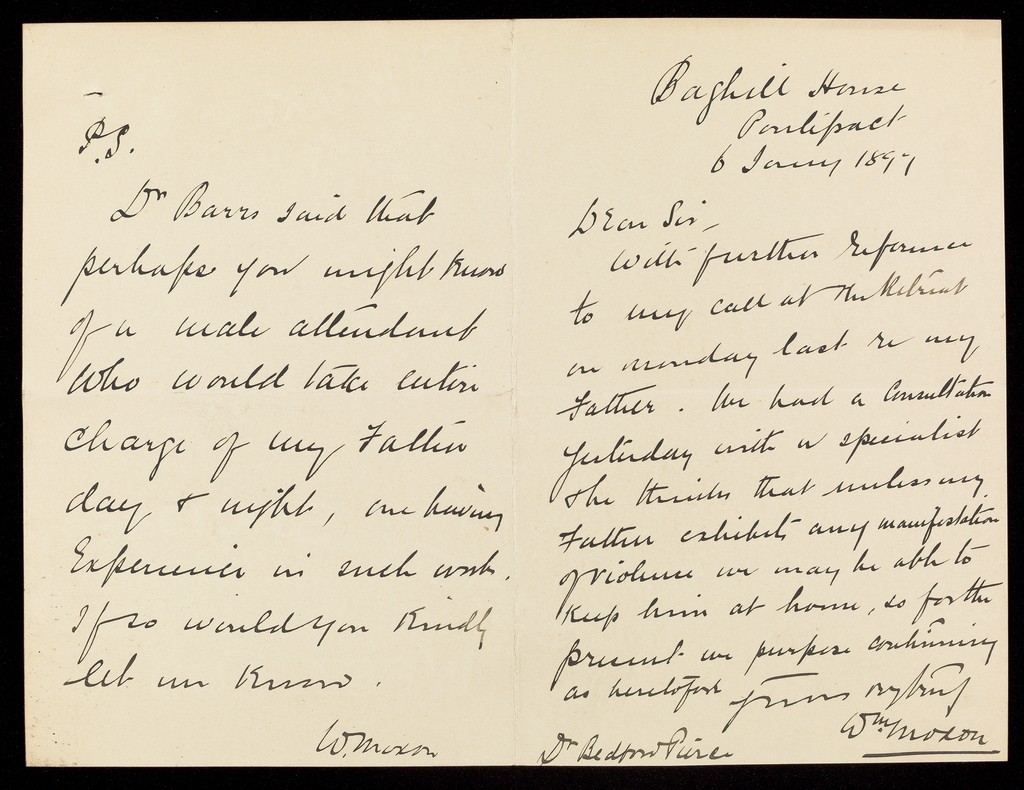 Baghill House
Pontefract
6 Jany 1897
Dear Sir,
With further reference
to my call at The Retreat
on Monday last re my
Father. We had a Consultation
yesterday with a specialist
& he thinks that unless my
Father exhibits any manifestation
of violence we may be able to
keep him at home, so for the
present we purpose continuing
as heretofore
Yours very truly
Wm Moxon
Dr Bedford Pierce
P.S.
Dr Barrs said that
perhaps you might know
of a male attendant
who would take entire
charge of my Father
day & night, one having
Experience in such work.
If so would you kindly
let me know.
W. Moxon